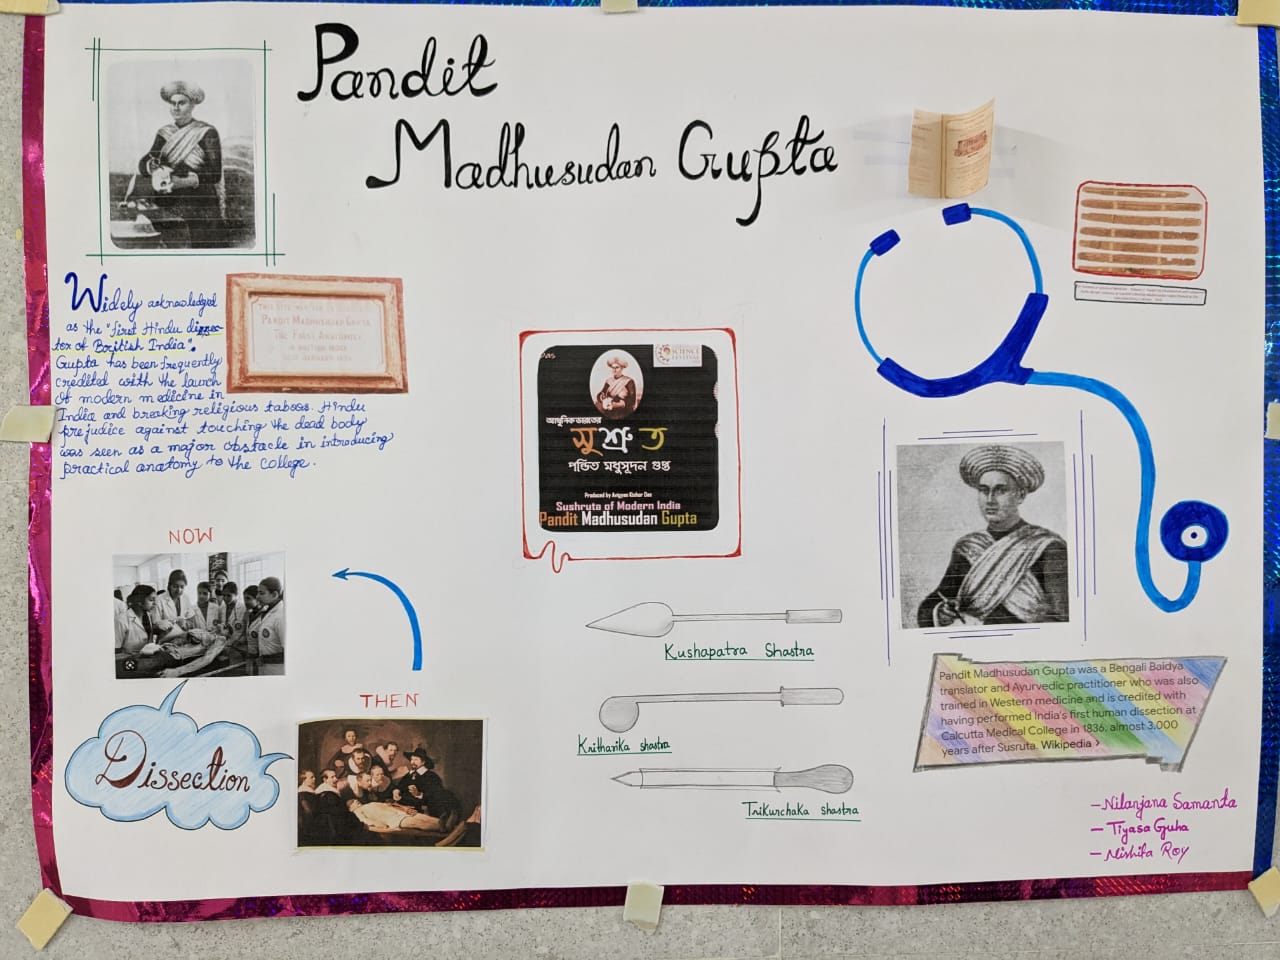 Pandit
Madhusudan Gupta
Widely acknowledged
as the "first Hindu dissec-
tor of British India".
Gupta has been frequently
credited with the launch
of modern medicine in
India and breaking religious taboos. Hindu
prejudice against touching the dead body
was seen as a major obstacle in introducing
practical anatomy to the college.
PANDIT MADHUSUDAN GUPTA
THE FIRST ANATOMIST
SCIENCE
FESTIVAL
আধুনিক ভারতের
সুশ্রুত
পণ্ডিত মধুসূদন গুপ্ত
Produced by Avigyan Kishor Das
Sushruta of Modern India
Pandit Madhusudan Gupta
NOW
THEN
Dissection
Kushapatra Shastra
Kritharika shastra
Trikurchaka shastra
Pandit Madhusudan Gupta was a Bengali Baidya
translator and Ayurvedic practitioner who was also
trained in Western medicine and is credited with
having performed India's first human dissection at
Calcutta Medical College in 1836, almost 3,000
years after Susruta. Wikipedia >
- Nilanjana Samanta
- Tiyasa Guha
- Nishita Roy